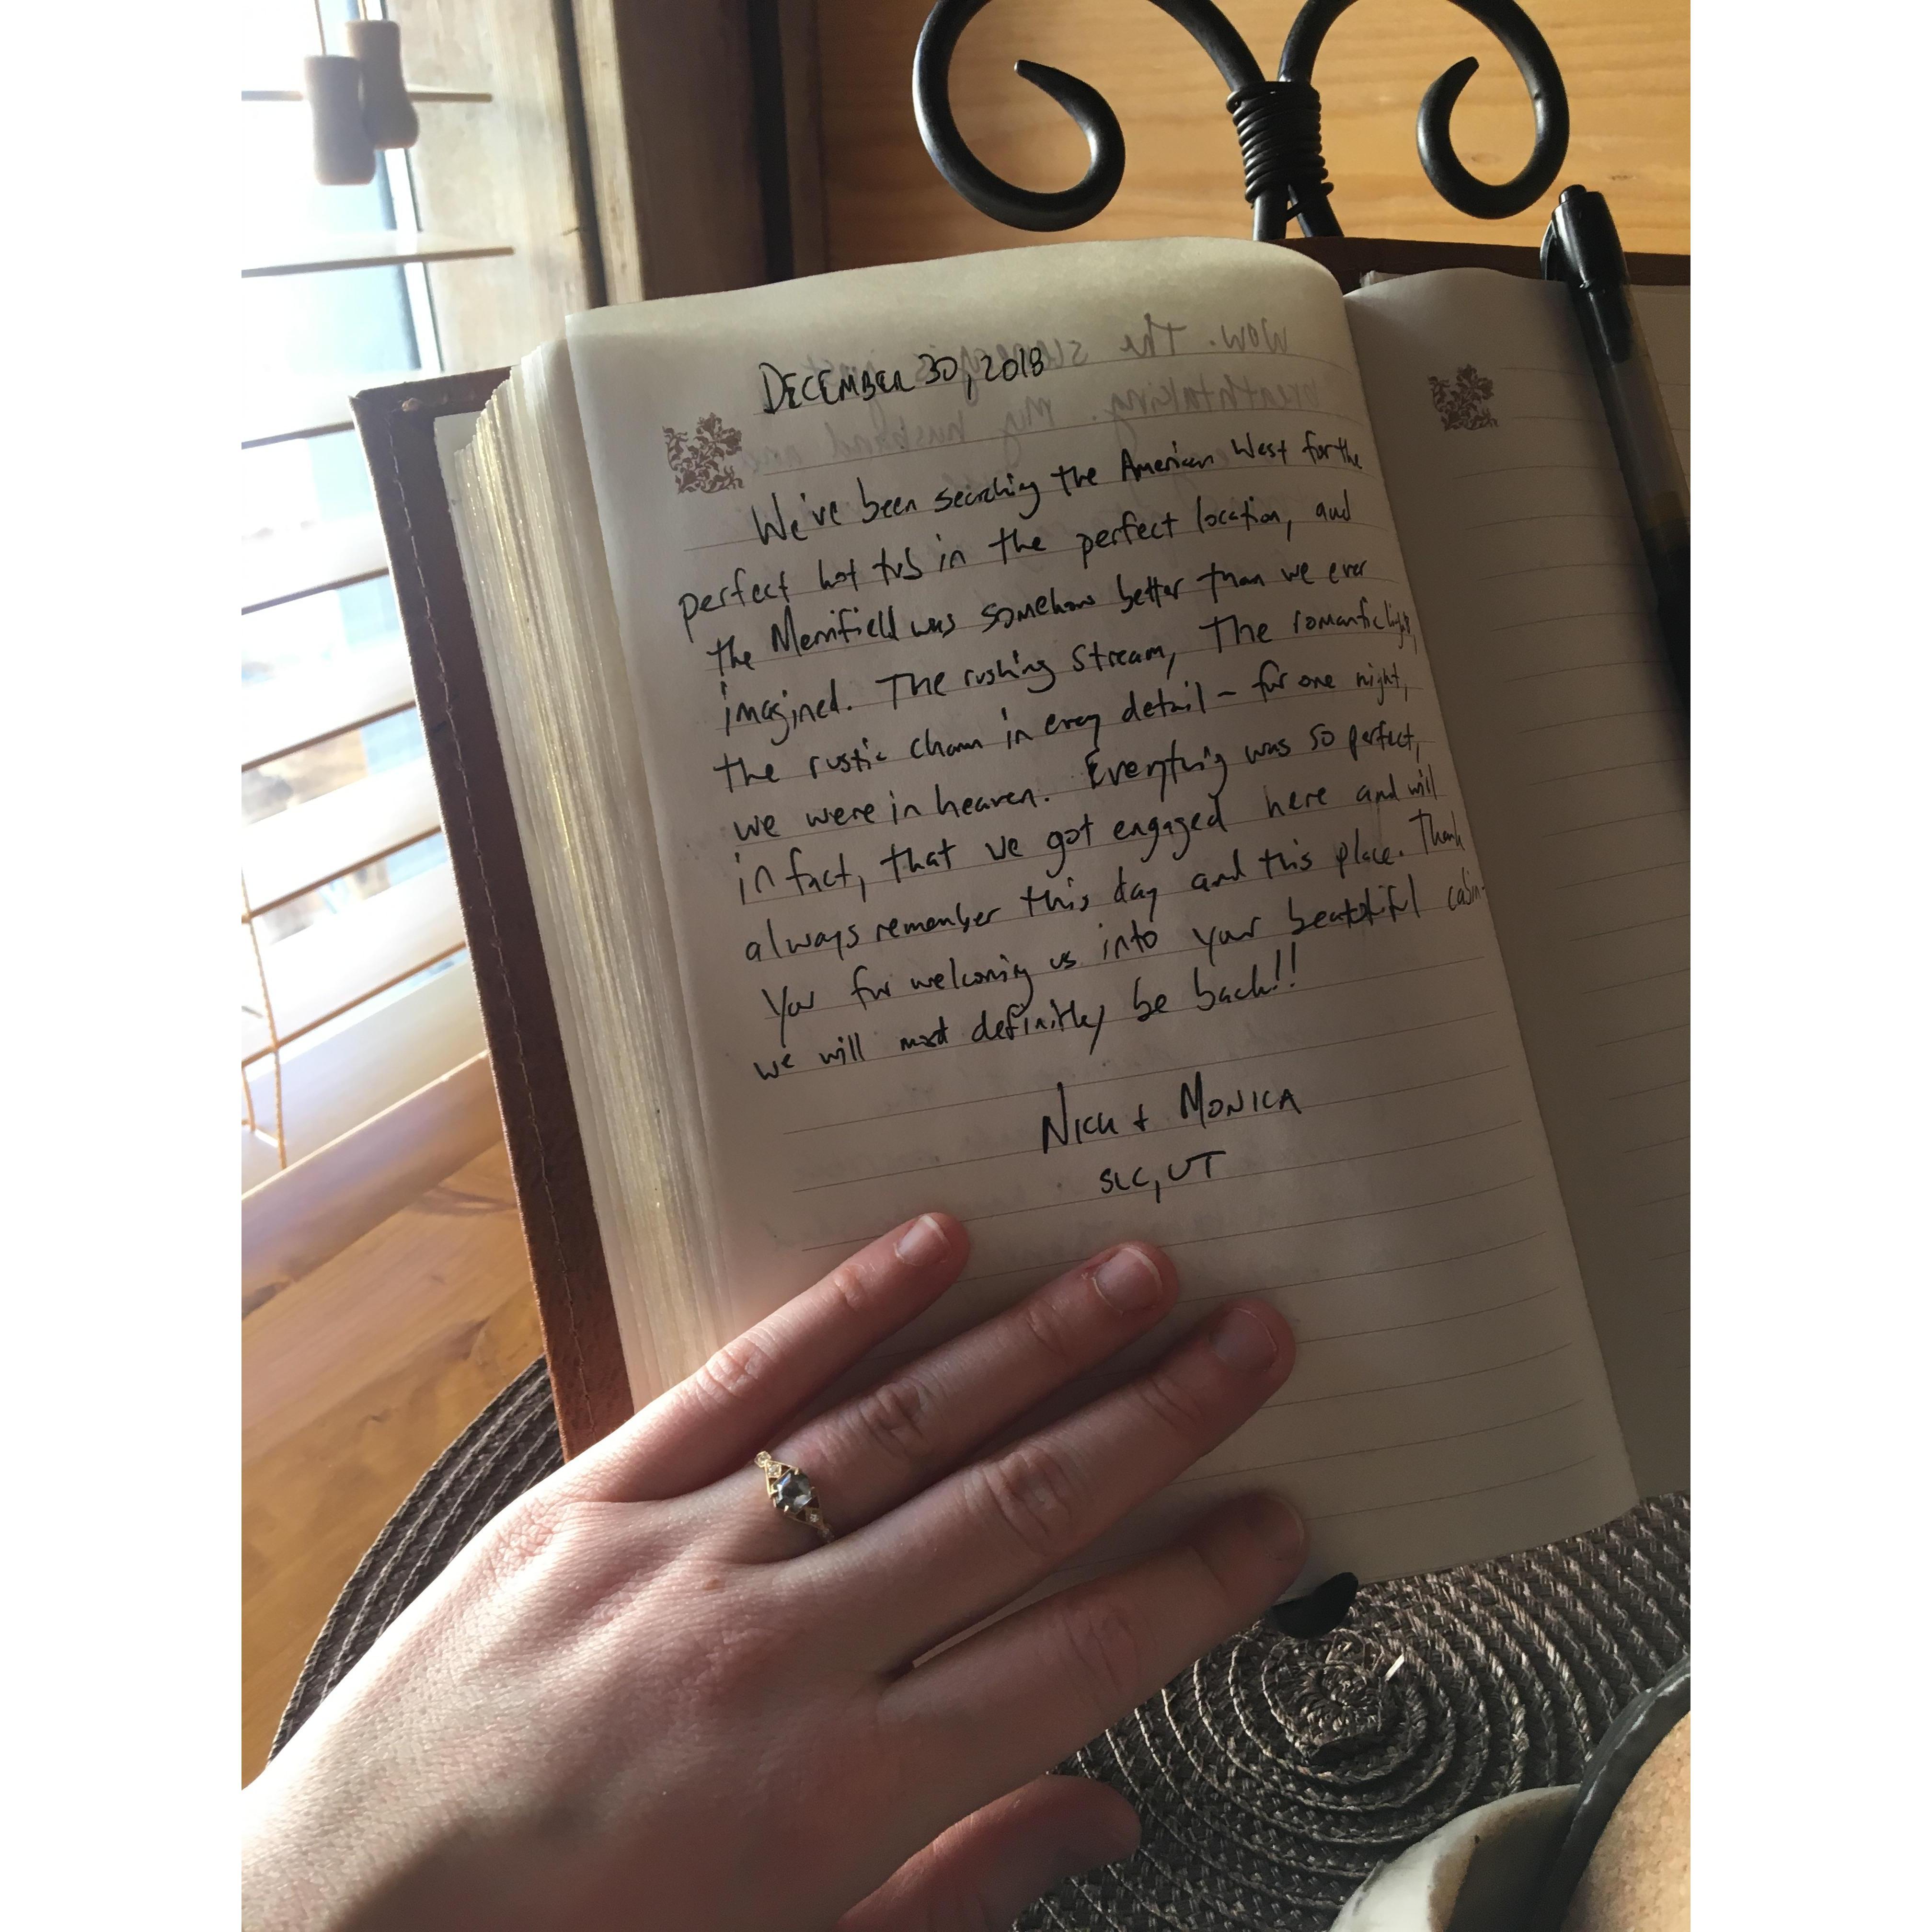 DECEMBER 30, 2018
We've been searching the American West for the
perfect hot tub in the perfect location, and
the Merrifield was somehow better than we ever
imagined. The rushing stream, The romantic lights,
the rustic charm in every detail - for one night,
we were in heaven. Everything was so perfect,
in fact, that we got engaged here and will
always remember this day and this place. Thank
you for welcoming us into your beautiful cabin.
we will most definitely be back!!
NICK + MONICA
SLC, UT